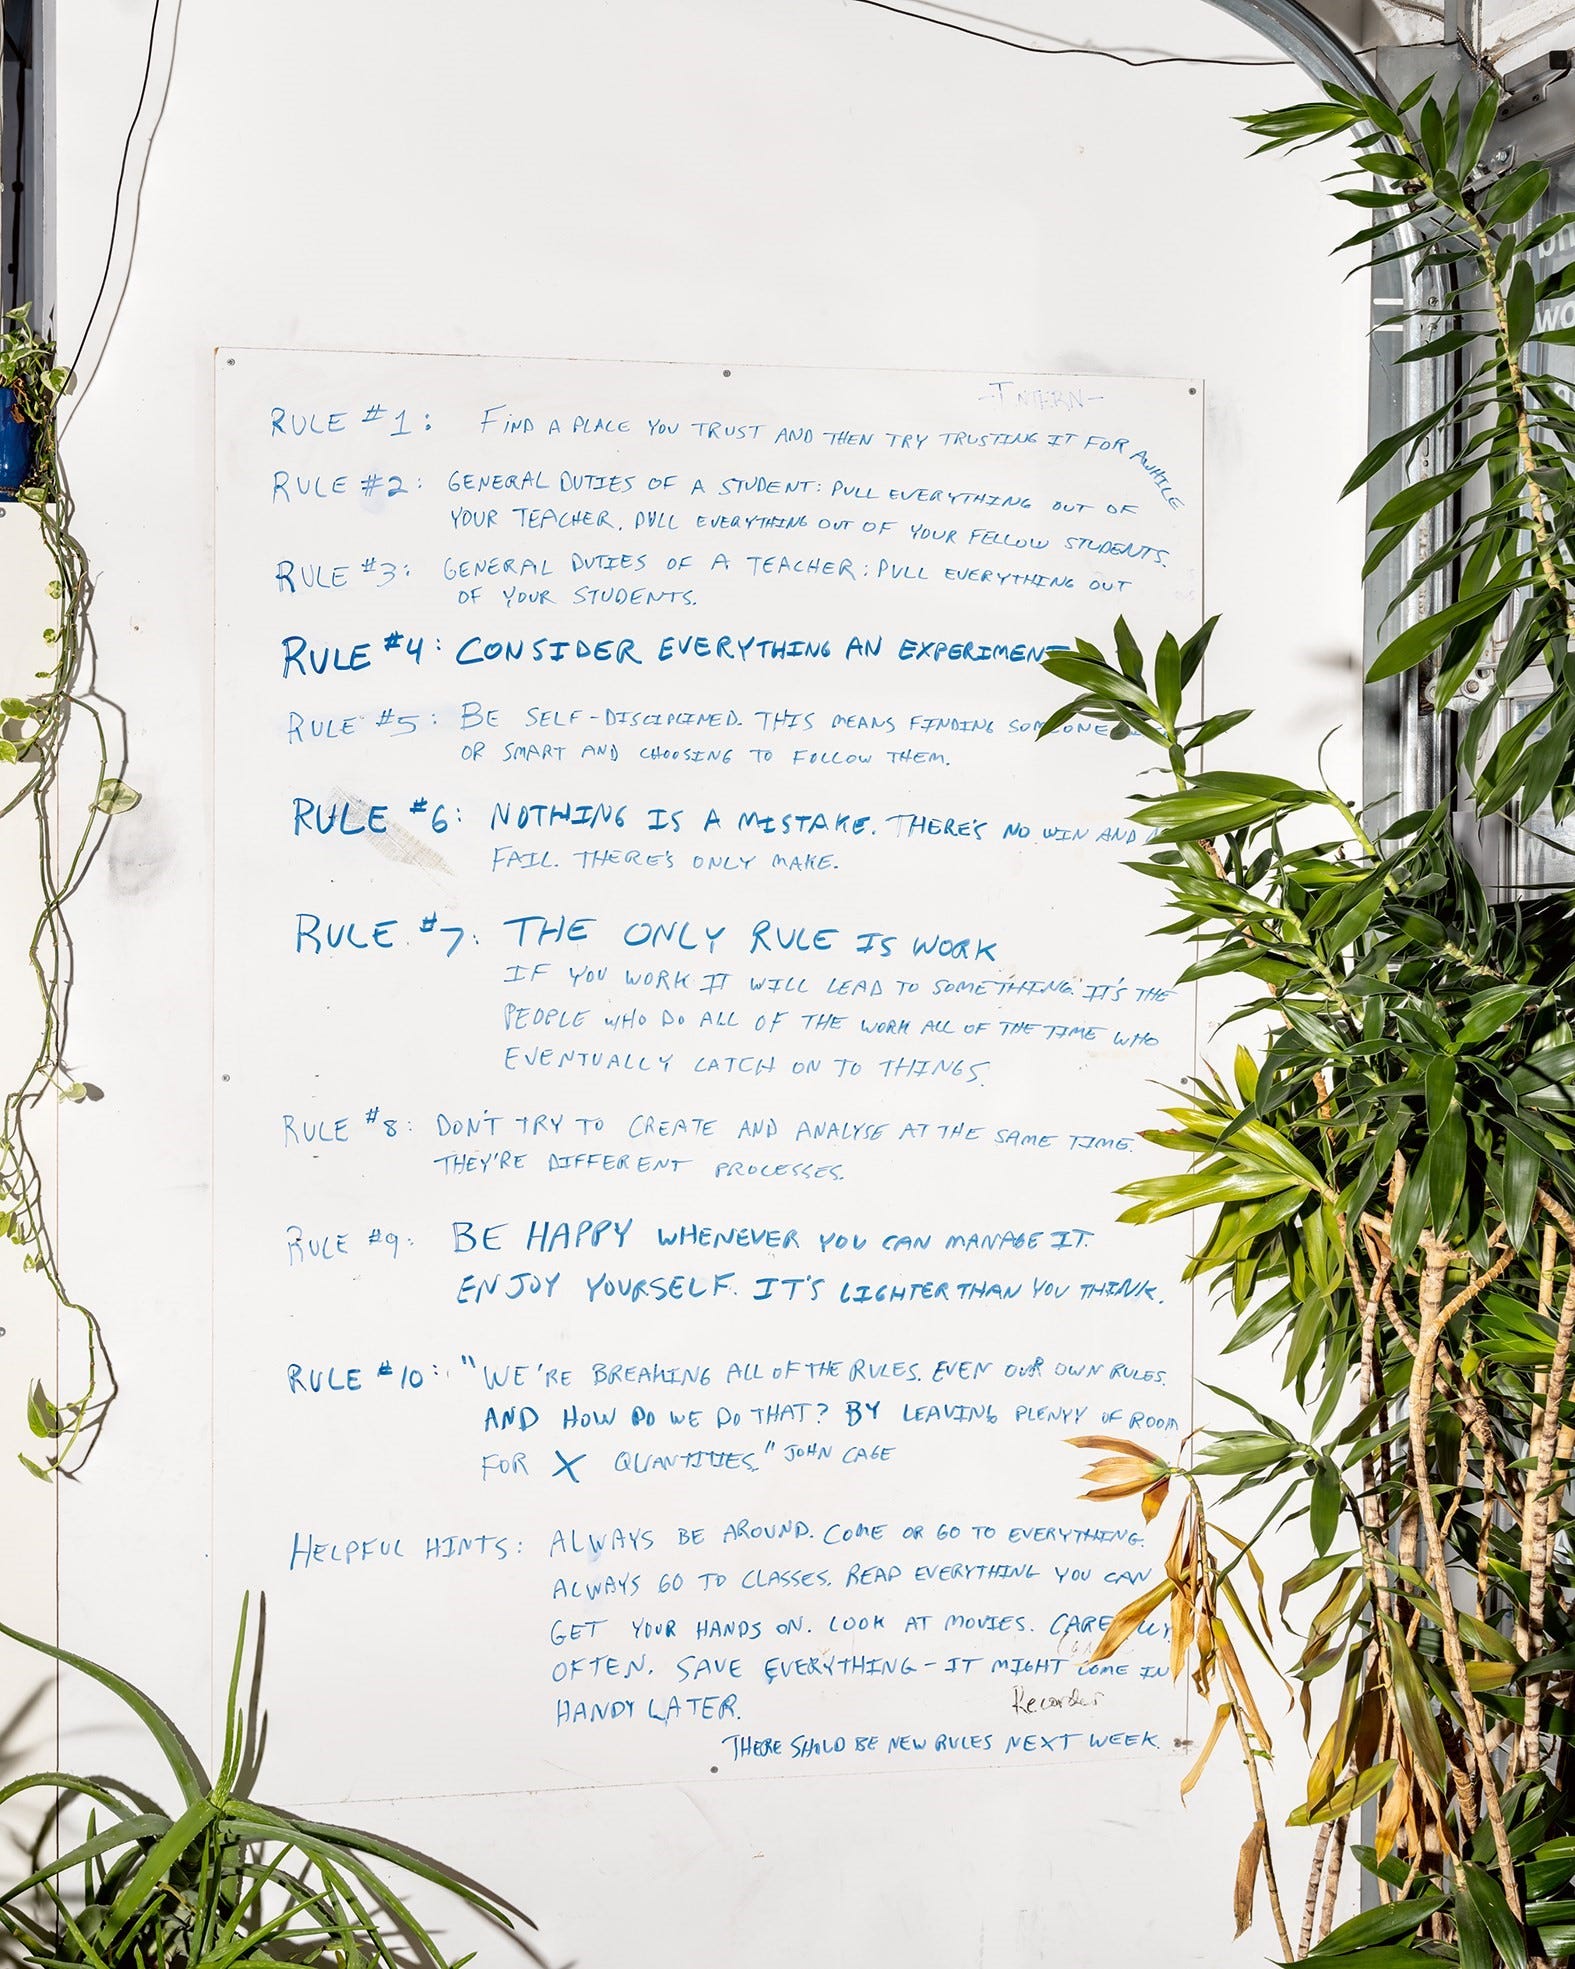 -INTERN-
RULE #1: FIND A PLACE YOU TRUST AND THEN TRY TRUSTING IT FOR AWHILE
RULE #2: GENERAL DUTIES OF A STUDENT: PULL EVERYTHING OUT OF
YOUR TEACHER. PULL EVERYTHING OUT OF YOUR FELLOW STUDENTS.
RULE #3: GENERAL DUTIES OF A TEACHER: PULL EVERYTHING OUT
OF YOUR STUDENTS.
RULE #4: CONSIDER EVERYTHING AN EXPERIMENT
RULE #5: BE SELF-DISCIPLINED. THIS MEANS FINDING SOMEONE
OR SMART AND CHOOSING TO FOLLOW THEM.
RULE #6: NOTHING IS A MISTAKE. THERE'S NO WIN AND
FAIL. THERE'S ONLY MAKE.
RULE #7: THE ONLY RULE IS WORK
IF YOU WORK IT WILL LEAD TO SOMETHING. IT'S THE
PEOPLE WHO DO ALL OF THE WORK ALL OF THE TIME WHO
EVENTUALLY CATCH ON TO THINGS.
RULE #8: DON'T TRY TO CREATE AND ANALYSE AT THE SAME TIME.
THEY'RE DIFFERENT PROCESSES.
RULE #9: BE HAPPY WHENEVER YOU CAN MANAGE IT.
ENJOY YOURSELF. IT'S LIGHTER THAN YOU THINK.
RULE #10: "WE'RE BREAKING ALL OF THE RULES. EVEN OUR OWN RULES.
AND HOW DO WE DO THAT? BY LEAVING PLENTY OF ROOM
FOR X QUANTITIES." JOHN CAGE
HELPFUL HINTS: ALWAYS BE AROUND. COME OR GO TO EVERYTHING.
ALWAYS GO TO CLASSES. READ EVERYTHING YOU CAN
GET YOUR HANDS ON. LOOK AT MOVIES.
OFTEN. SAVE EVERYTHING - IT MIGHT COME IN
HANDY LATER.
Recorder
THERE SHOLD BE NEW RULES NEXT WEEK.